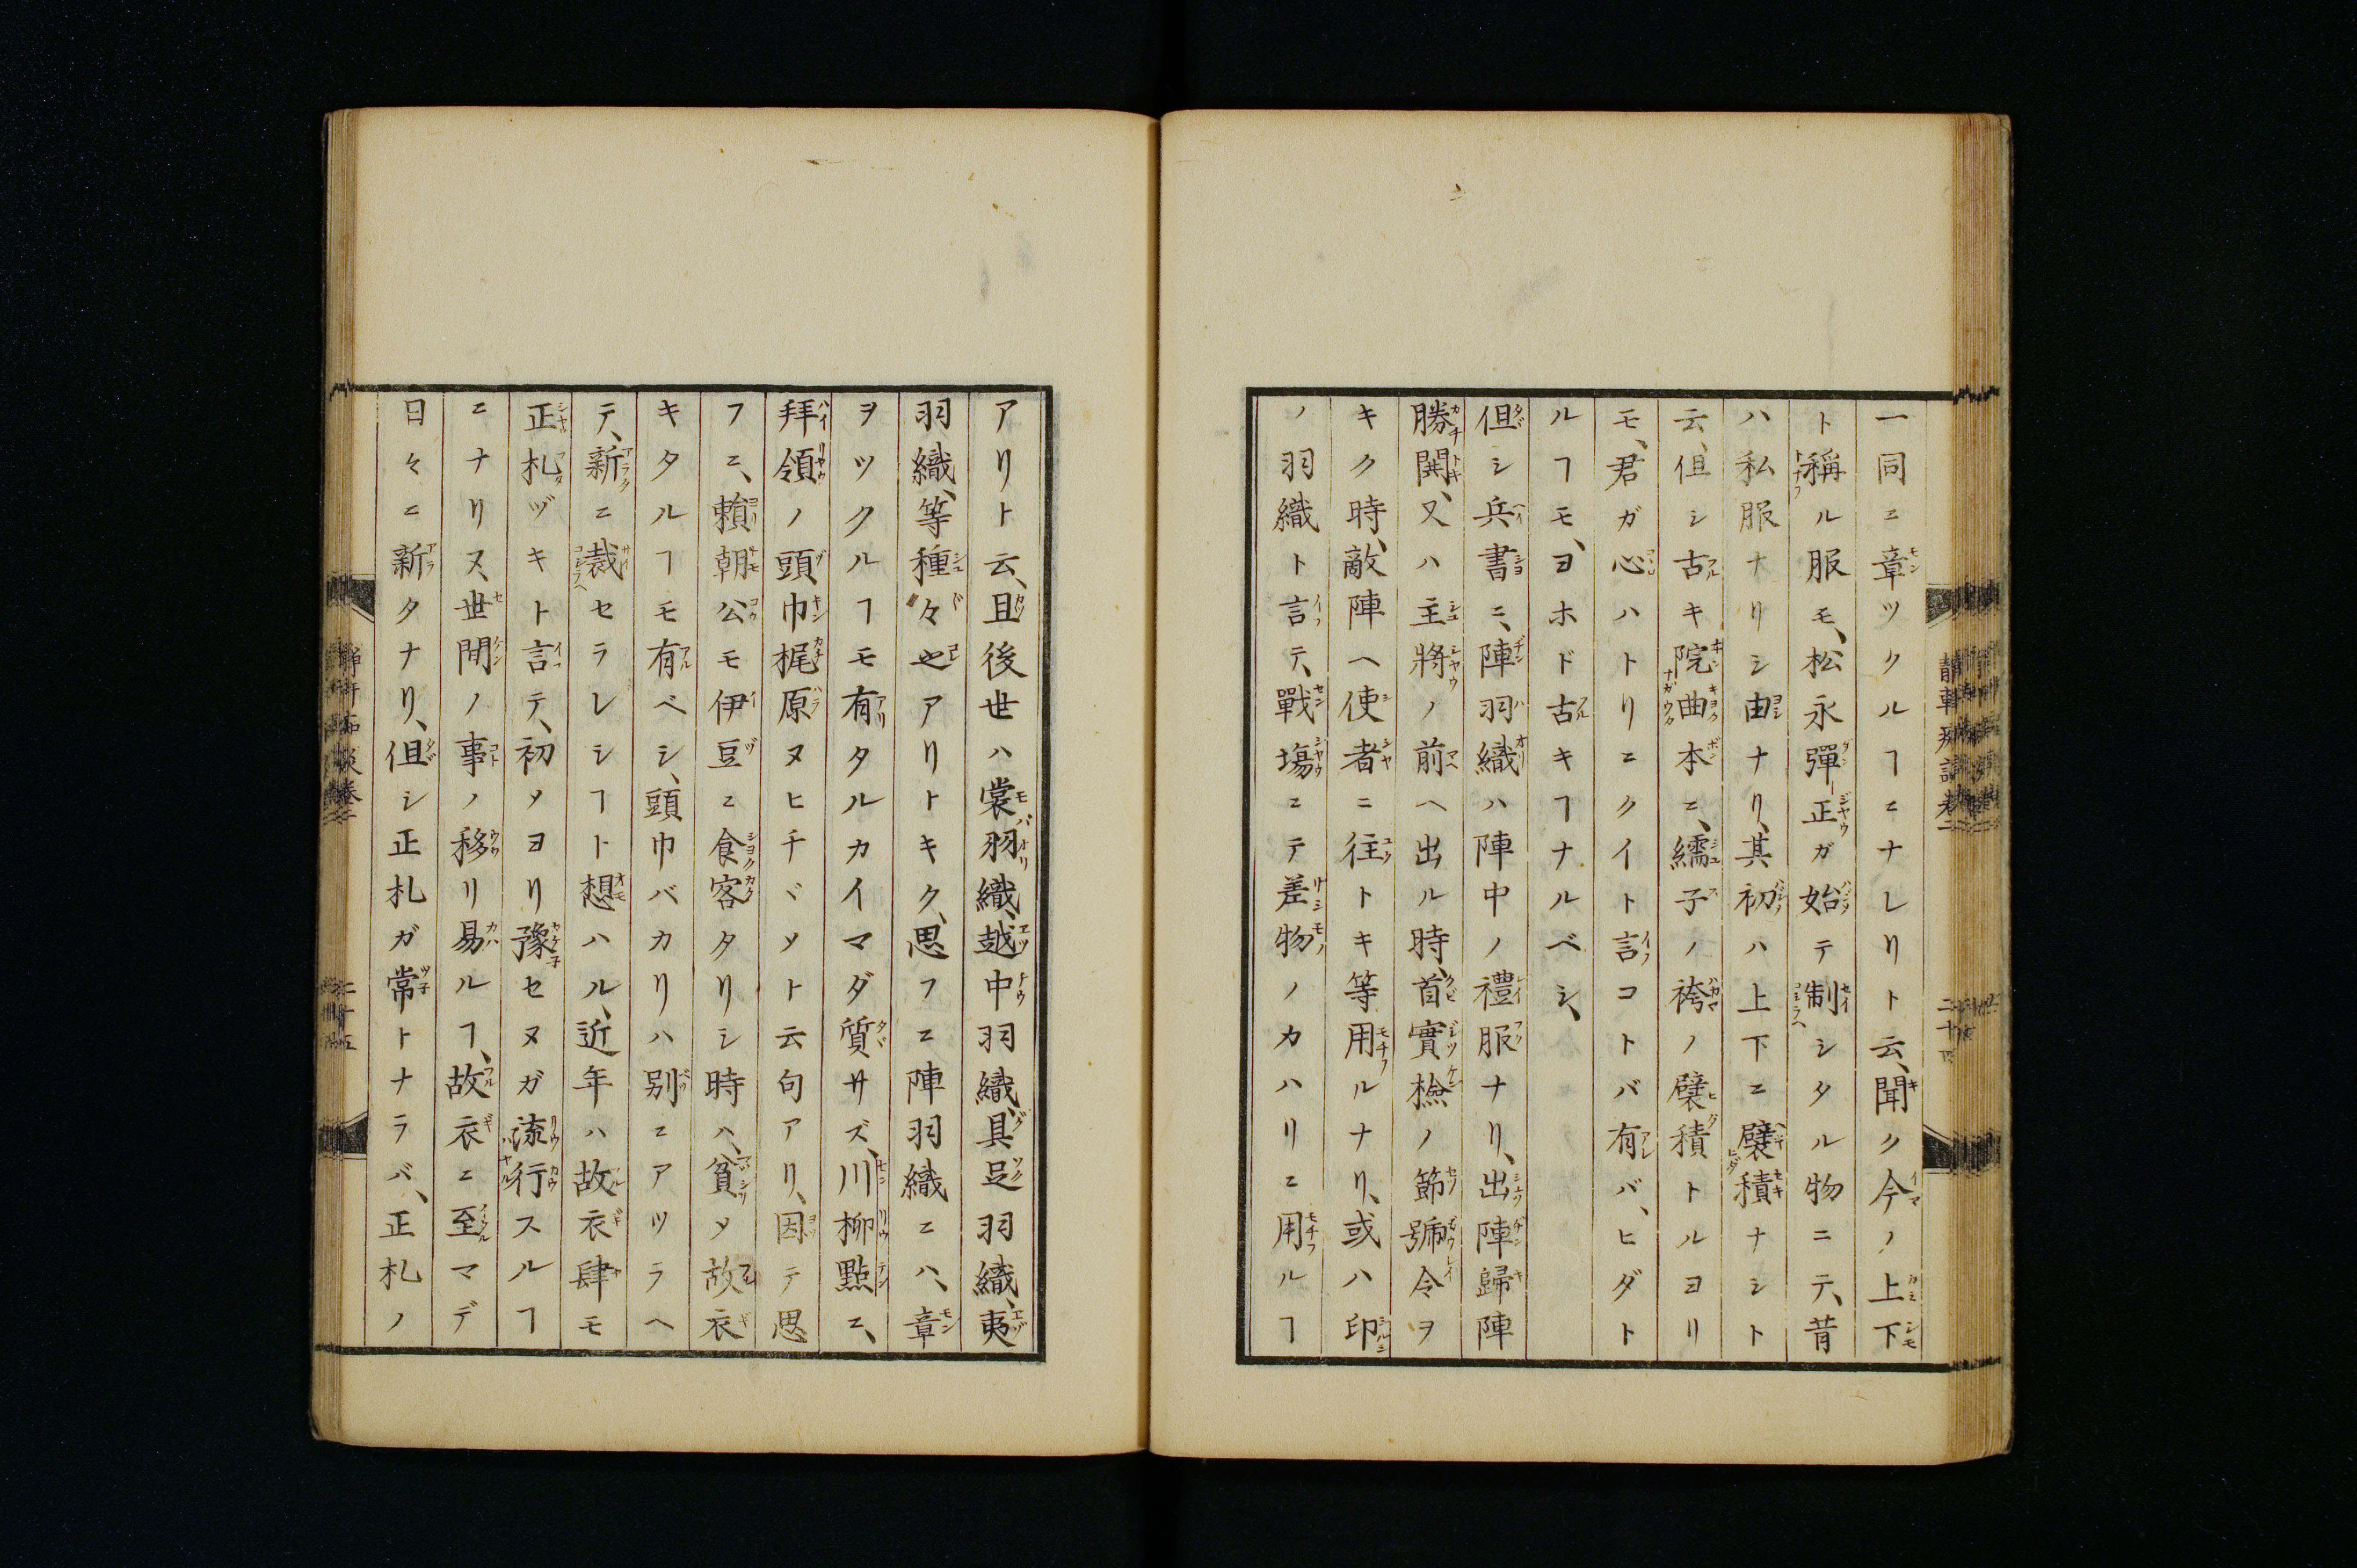 一同ニ章ツクルヿニナレリト云、聞ク今ノ上下
ト稱ル服モ、松永彈正ガ始テ制シタル物ニテ、昔
ハ私服ナリシ由ナリ、其初ハ上下ニ襞積ナシト
云、但シ古キ院曲本ニ、繻子ノ袴ノ襞積トルヨリ
モ、君ガ心ハトリニクイト言コトバ有バ、ヒダト
ルヿモ、ヨホド古キヿナルベシ、
但シ兵書ニ、陣羽織ハ陣中ノ禮服ナリ、出陣歸陣
勝鬨、又ハ主將ノ前ヘ出ル時、首實檢ノ節號令ヲ
キク時、敵陣ヘ使者ニ往トキ等用ルナリ、或ハ印
ノ羽織ト言テ、戰場ニテ差物ノカハリニ用ルヿ
アリト云、且後世ハ裳羽織、越中羽織、具足羽織、夷
羽織、等種々也アリトキク、思フニ陣羽織ニハ、章
ヲツクルヿモ有タルカイマダ質サズ、川柳點ニ、
拜領ノ頭巾梶原ヌヒチヾメト云句アリ、因テ思
フニ、賴朝公モ伊豆ニ食客タリシ時ハ、貧メ故衣
キタルヿモ有ベシ、頭巾バカリハ別ニアツラヘ
テ、新ニ裁セラレシヿト想ハル、近年ハ故衣肆モ
正札ヅキト言テ、初メヨリ豫セヌガ流行スルヿ
ニナリヌ、世間ノ事ノ移リ易ルヿ、故衣ニ至マデ
日々ニ新タナリ、但シ正札ガ常トナラバ、正札ノ